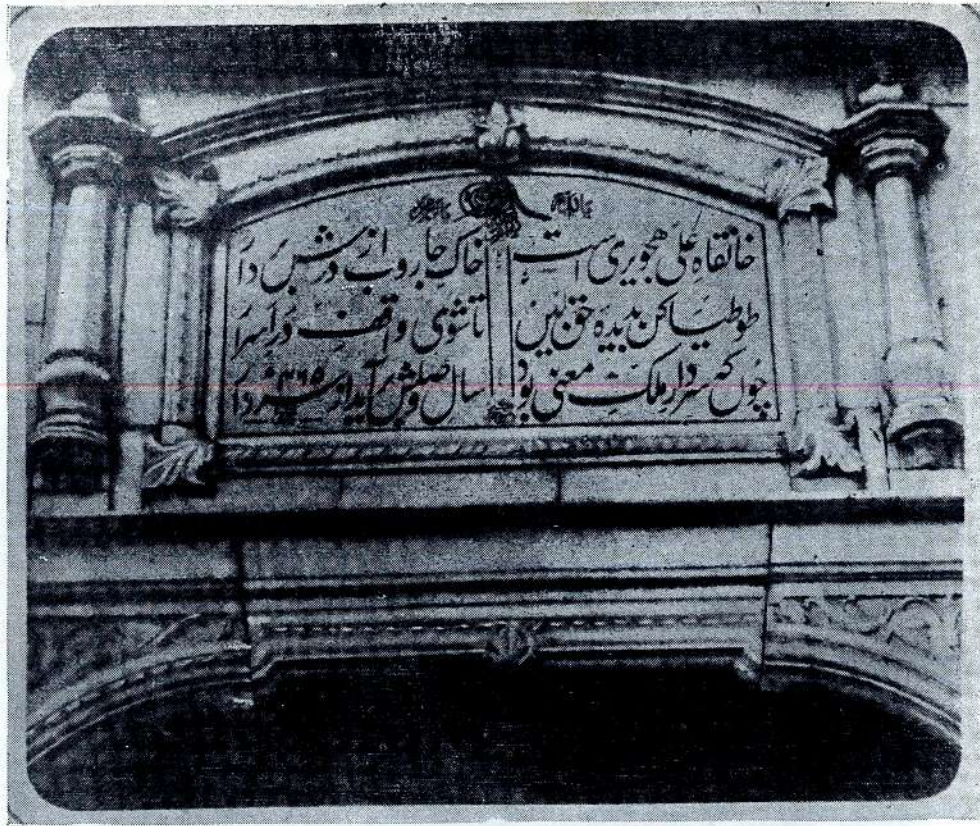 خانقاہ علی ہجویری است خاک جاروب از درش بردار
طوطیا کن بدیدہ حق بیں تا شوی واقف در اسرار
چوں کہ سردار ملک معنی بود سال وصلش برآید از سردار
۴۶۵